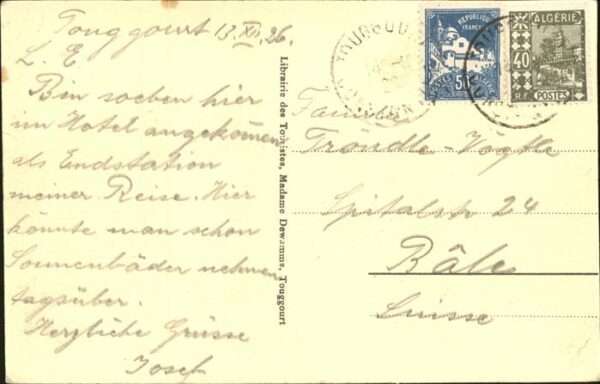 Touggourt 13.XII.26.
L. E.
Bin soeben hier
im Hotel angekommen
als Endstation
meiner Reise. Hier
könnte man schon
Sonnenbäder nehmen
tagsüber.
Herzliche Grüsse
Josef
Librairie des Touristes, Madame Dewamme, Touggourt
TOUGGOU
REPUBLIQUE
FRANCAISE
50
POSTES
ALGÉRIE
40
R.F. POSTES
Familie
Tröndle-Vogtle
Spitalstr 24
Bâle
Suisse